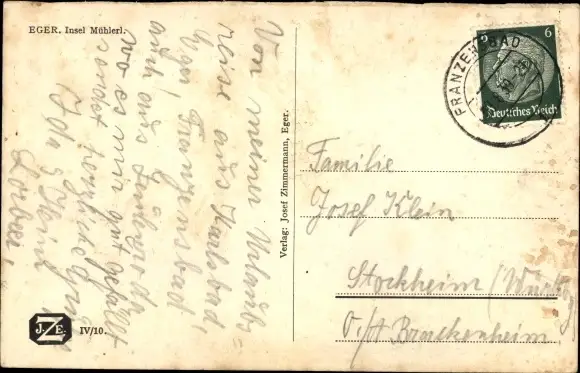 EGER. Insel Mühlerl.
Von meiner Urlaubs=
reise aus Karlsbad,
Eger, Franzensbad
auch aus
wo es mir gut gefällt
sendet herzliche Grüße
Ida, Heini
J.Z.E.
IV/10.
Verlag: Josef Zimmermann, Eger.
FRANZENSBAD
6
Deutsches Reich
Familie
Josef Klein
Stockheim (Württbg
O./A Brackenheim